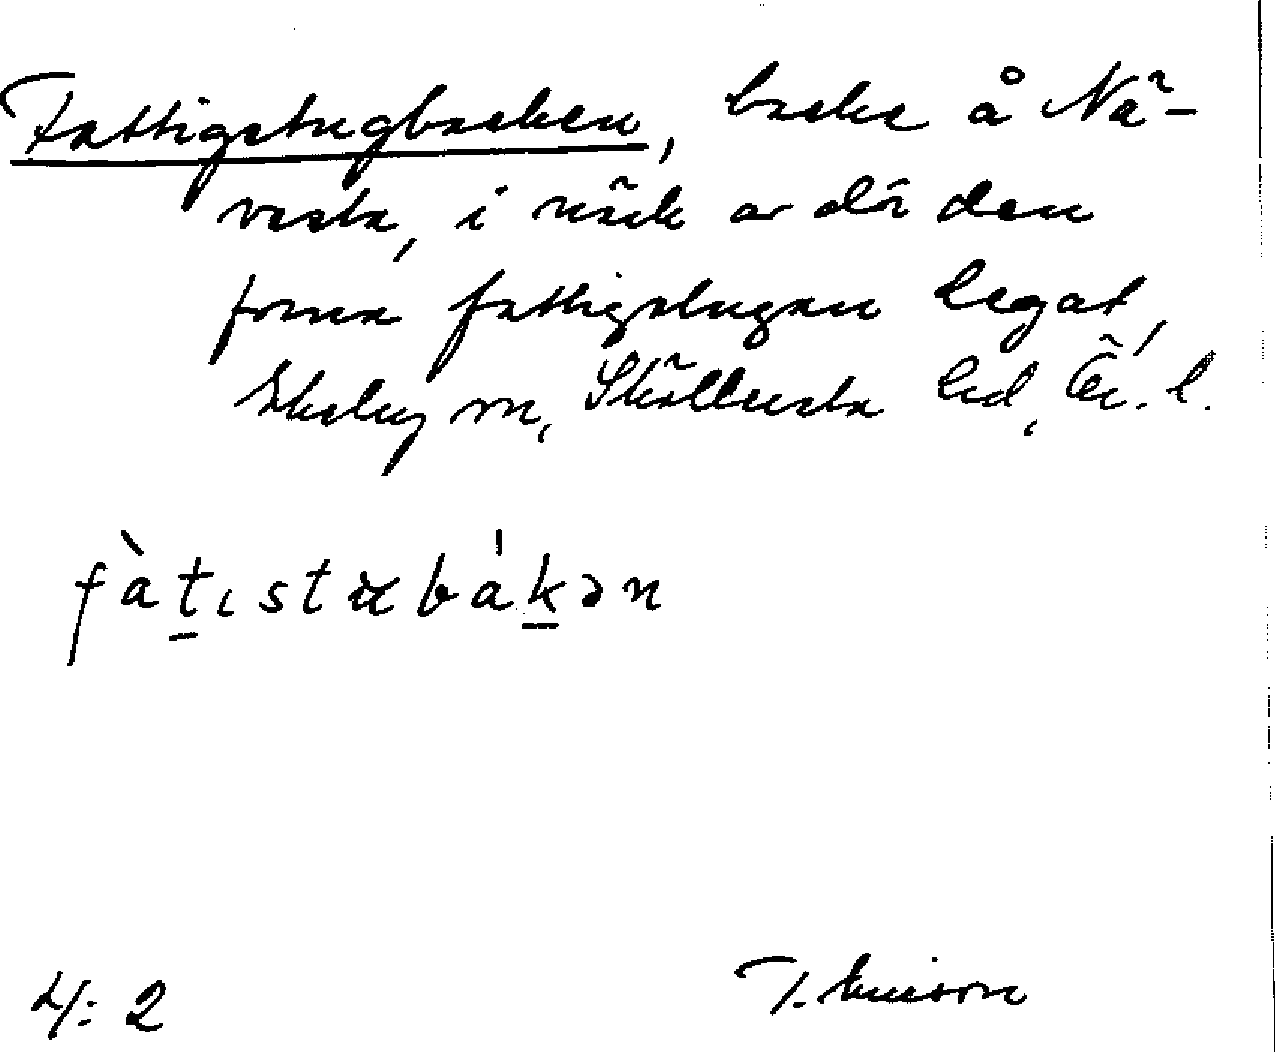 Fattigstugbacken, backe å Nä-
vesta, i närh. av där den
forna fattigstugan legat,
Ekeby sn, Sköllersta hd, Ör. l.
fàtıstʉbákən
4:2
T. Ericson